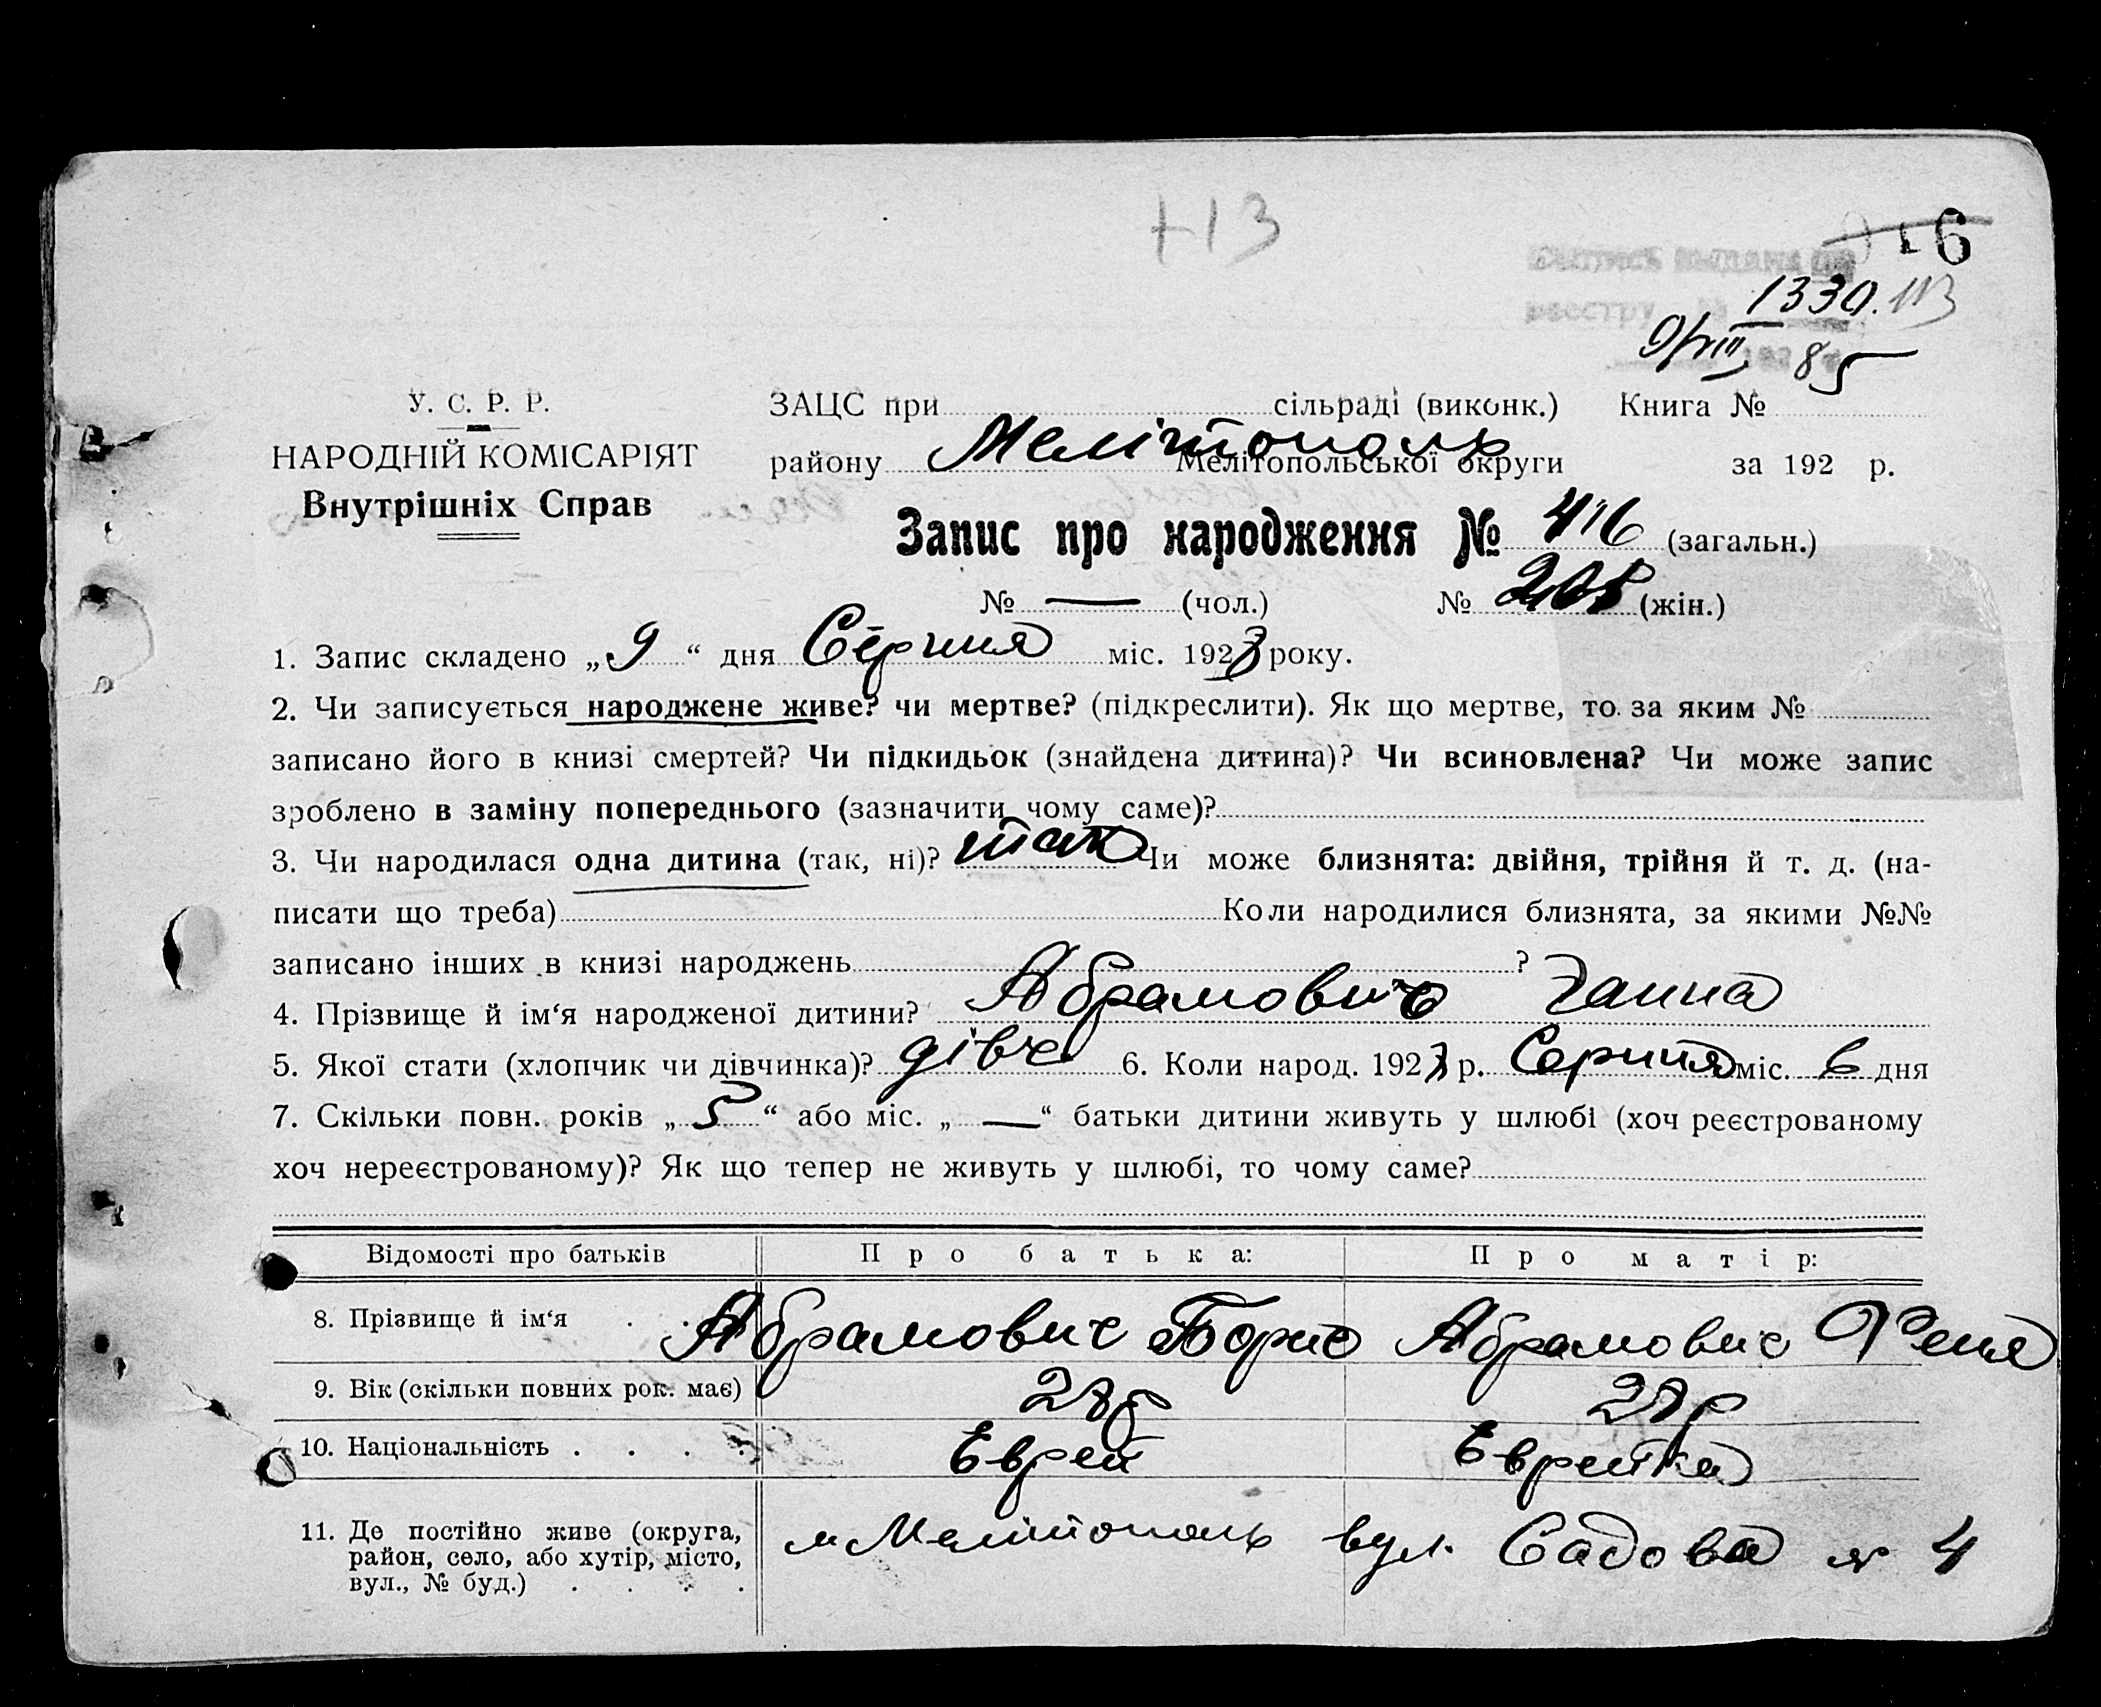 +13
16
1330. 113
9/VIII 85
У. С. Р. Р.
НАРОДНІЙ КОМІСАРІЯТ
Внутрішніх Справ
ЗАЦС при сільраді (виконк.) Книга №
району Мелітополь Мелітопольської округи за 192 р.
Запис про народження № 416 (загальн.)
№ — (чол.) № 208 (жін.)
1. Запис складено „ 9 “ дня Серпня міс. 1928 року.
2. Чи записується народжене живе? чи мертве? (підкреслити). Як що мертве, то за яким №
записано його в книзі смертей? Чи підкидьок (знайдена дитина)? Чи всиновлена? Чи може запис
зроблено в заміну попереднього (зазначити чому саме)?
3. Чи народилася одна дитина (так, ні)? так Чи може близнята: двійня, трійня й т. д. (на-
писати що треба) Коли народилися близнята, за якими №№
записано інших в книзі народжень ?
4. Прізвище й ім‘я народженої дитини? Абрамович Ганна
5. Якої стати (хлопчик чи дівчинка)? дівч. 6. Коли народ. 192 р. Серпня міс. 6 дня
7. Скільки повн. років „ 5 “ або міс. „ — “ батьки дитини живуть у шлюбі (хоч реєстрованому
хоч нереєстрованому)? Як що тепер не живуть у шлюбі, то чому саме?
Відомості про батьків Про батька: Про матір:
8. Прізвище й ім‘я . . Абрамович Борис Абрамович Феня
9. Вік (скільки повних рок. має) 28 р 28 р
10. Національність . . . . Еврей Еврейка
11. Де постійно живе (округа,
район, село, або хутір, місто,
вул., № буд.) . . . .
м Мелітополь вул. Садова № 4